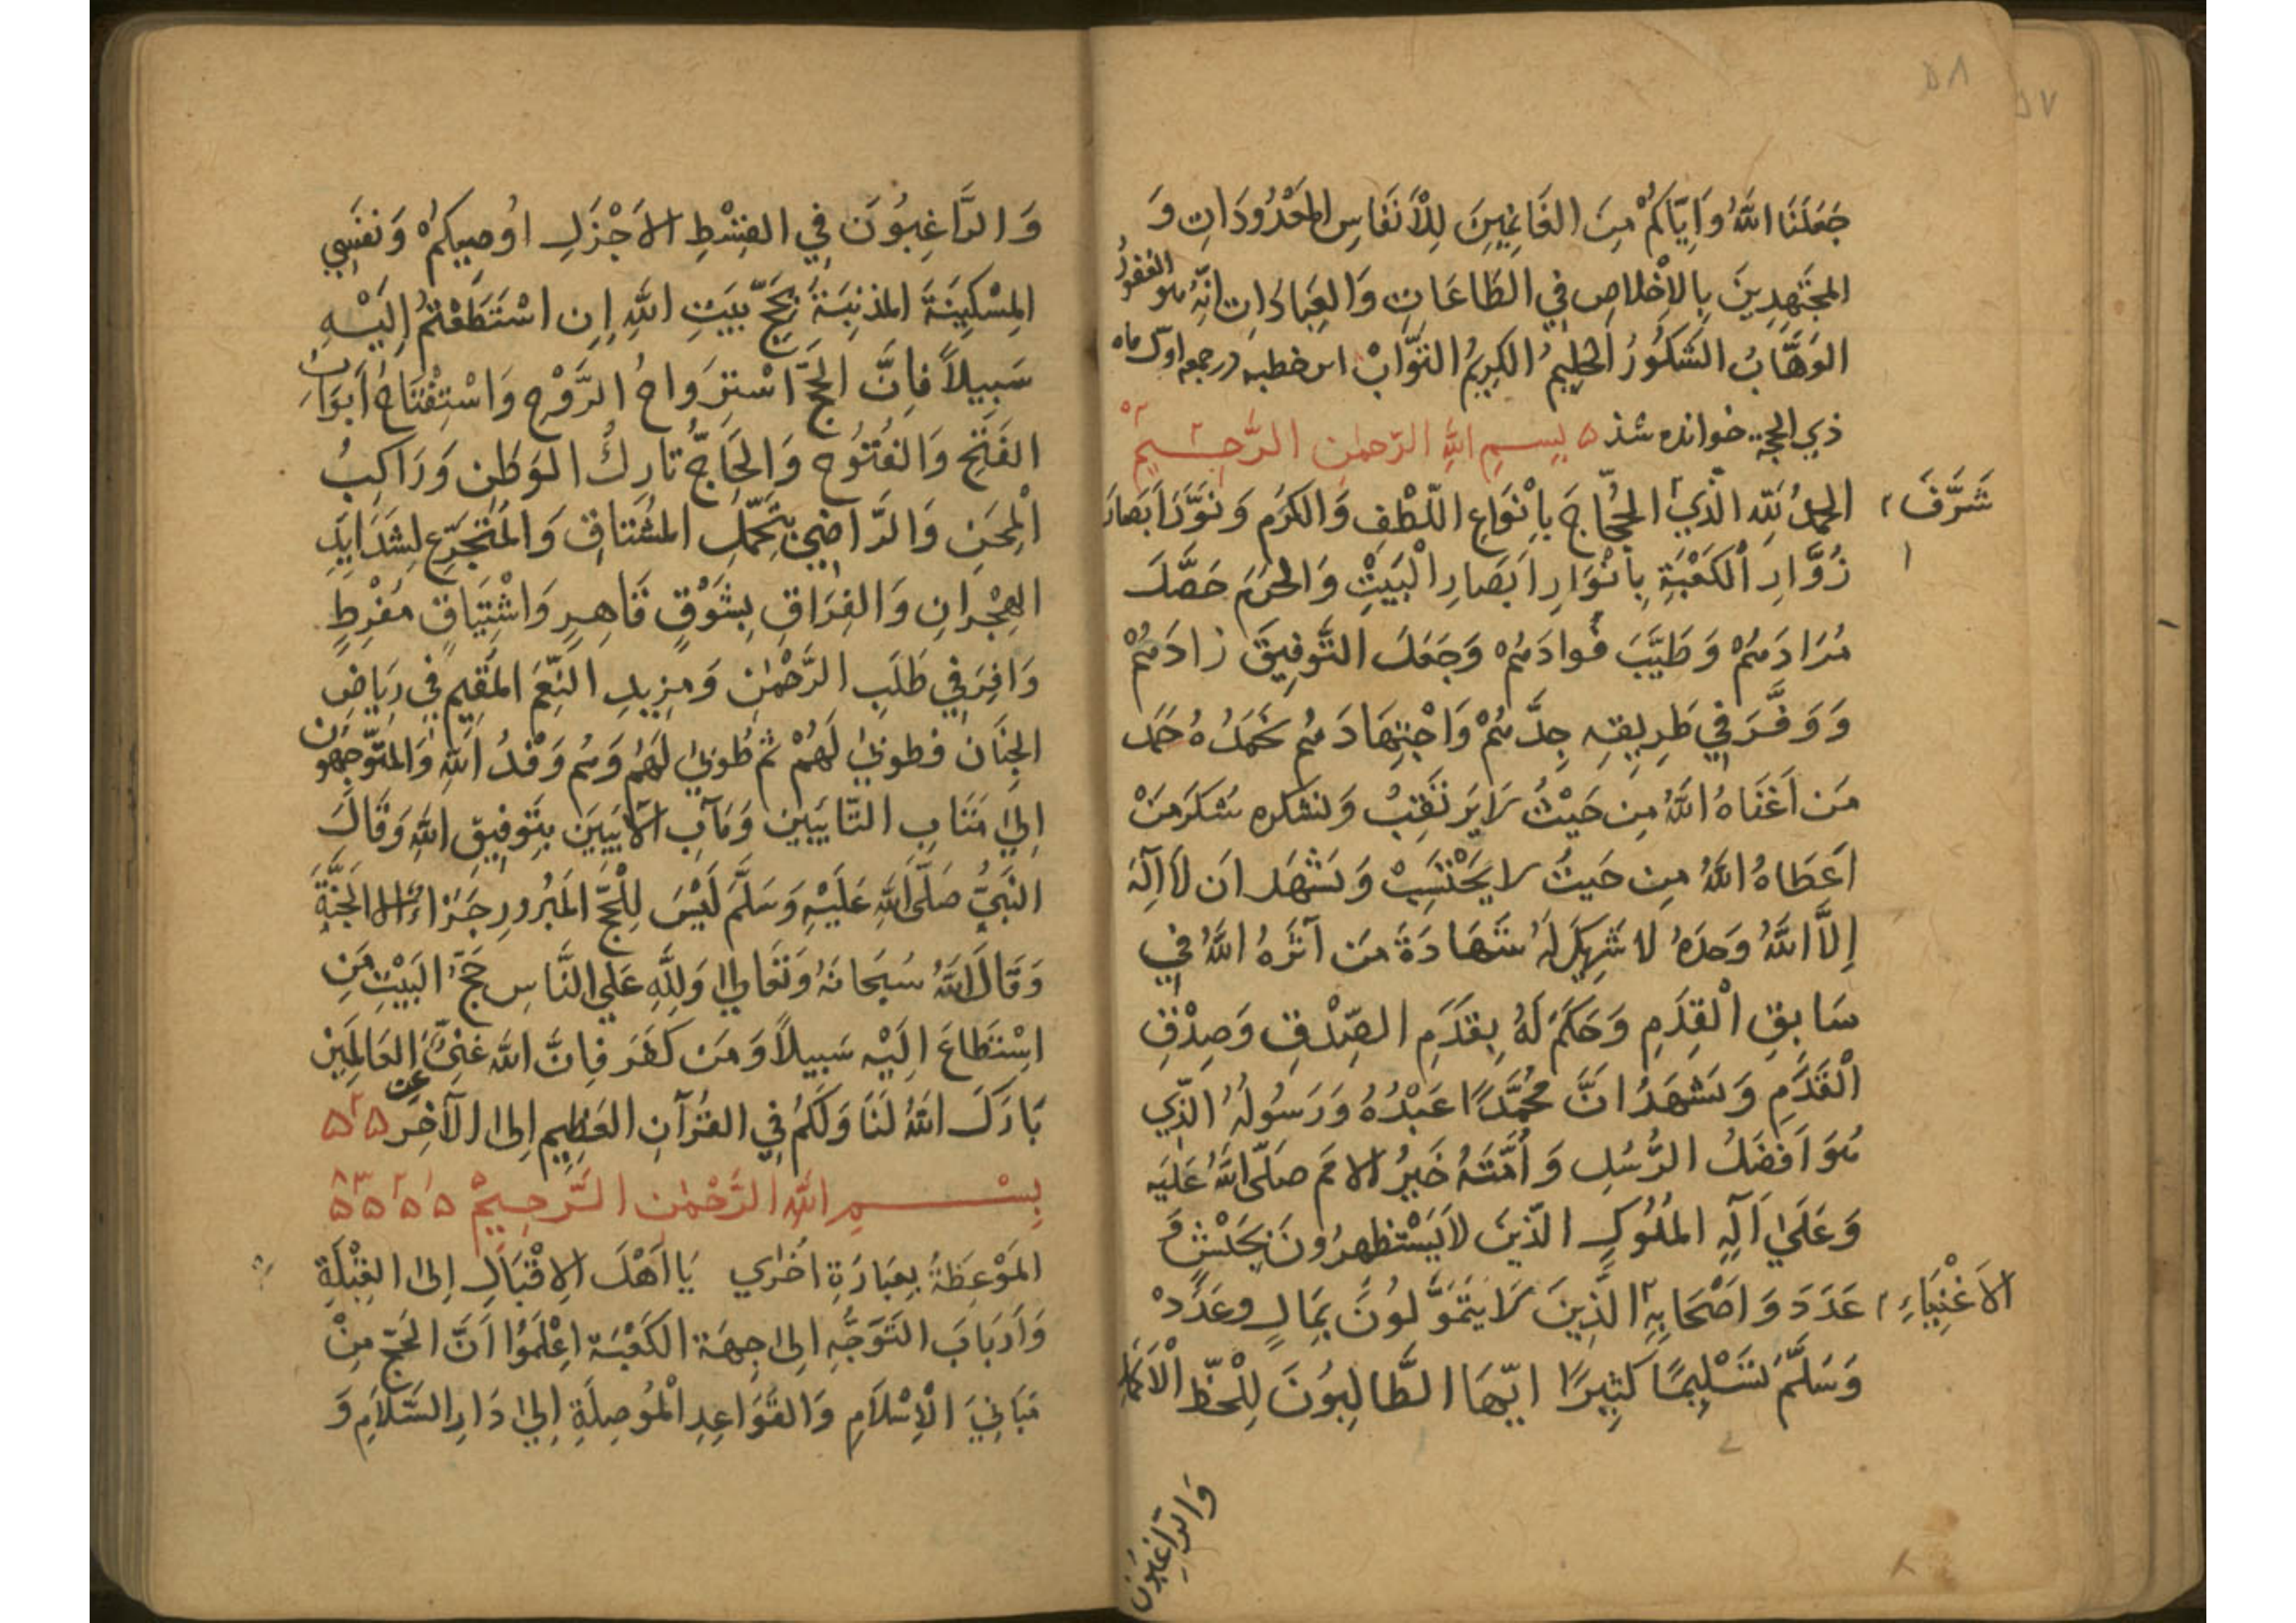 ٥٨
٥٧
جَعَلَنَا اللهُ وَاِيَّاكُمْ مِنَ الغَانِمِيِنَ لِلْأَنفَاسِ المَعْدُودَاتِ وَ
المجتَهِدِينَ بِالاِخْلاصِ فِي الطَاعَاتِ وَالعِبَادَاتِ اِنَّهُ هو الغفورُ
الوَهَّابُ الشَكُورُ الحَلِيمُ الكَرِيمُ التَّوَّابْ اين خطبه در جمعه اول ماه
ذي الحجة خوانده شد ۵ بِسمِ اللهِ الرّحمٰنِ الرَّحِيمِ
الحمدُ لله الّذِي الحُجَّاجَ بِأَنْوَاعِ اللّطْفِ وَالكَرَمِ وَنَوَّرَ اَبصَارَ
شَرَّفَ
زُوَّارِ الْكَعْبَةِ بِاَنْوَارِ اَبصَارِ الْبَيْتِ وَالحَرَمِ حَصَّلَ
مُرَادَهُمْ وَطَيَّبَ فُوادَهُمْ وَجَعَلَ التَّوفِيقَ زادَهُمْ
وَوَفَّرَ فِي طَرِيقِهِ جِدَّهُمْ وَاجْتِهَادَهُم نَحْمَدُهُ حَمدَ
مَن اَغْنَاهُ اللهُ مِن حَيْثُ لَا يَرتَقِبُ وَنشكره شكرَ مَنْ
اَعطَاهُ اللهُ مِن حَيثُ لا يَحْتَسِبْ وَنَشْهَد اَن لَا اِلٰهَ
إِلاَّ اللهُ وَحدَهُ لا شَرِيكَ لَهُ شَهَادَةَ مَن آثَرَهُ اللهُ فِي
سَابِقِ الْقِدَمِ وَحَكَمَ لَهُ بِقَدَمِ الصِّدْقِ وَصِدْقِ
الْقَدَمِ وَنشهَدُ انَّ مُحمَّدًا عَبْدُهُ وَرَسُولُهُ الّذِي
هُوَ اَفضَلُ الرُّسُلِ وَاُمَّتَهُ خَيرُ الامَم صَلّى اللهُ عَلَيه
وَعَلَىٰ آلِهِ المُلُوكِ الّذِينَ لَا يَسْتَظهِرُونَ بِجَيْشٍ وَ
عَدَدَ وَاَصْحَابِهِ الَّذِينَ لَا يَتَمَوَّلُونَ بِمَالٍ وعَدَدْ
الاَغْنِيَاءِ
وَسَلَّمَ تَسْلِيمًا كَثِيرًا ايّهَا الطَّالِبُونَ لِلْحَظِّ الْاَكمَلِ
وَالرَاغِبُونَ
وَالرَّاغِبُونَ فِي القِسْطِ الاَجْزَلِ اُوصِيكُمْ وَنَفسِي
المِسْكِينَةَ المذنِبَةَ بِحَجِّ بَيتِ اللهِ اِنِ اسْتَطَعْتُمْ اِلَيْهِ
سَبِيلاً فَاِنَّ الحَجَّ اسْتِروَاحُ الرَّوْحِ وَاسْتِفْتَاحُ اَبوَابِ
الفَتحِ وَالفُتُوحِ وَالحَاجُّ تارِكُ الوَطَنِ وَرَاكِبُ
الْمِحَنِ وَالرَّاضِي بِتَحَمُّلِ المشْتاقِ وَالمُتَجَرِّع لِشَدَايدِ
الهِجْرَانِ وَالفِرَاقِ بِشَوْقٍ قَاهِرٍ وَاشْتِيَاقٍ مُفرِطٍ
وَافِرٍ فِي طَلَبِ الرَّحْمٰنِ وَمَزِيدِ النِّعَمِ المُقِيمِ فِي رِيَاضِ
الجِنَان فطوبىٰ لَهُمْ ثم طُوبىٰ لَهُمْ وَهُم وَفْدُ اللهِ وَالمتَوَجِّهُونَ
اِلىٰ مَتَابِ التَّايبِين وَمَآبِ الآيبِينَ بِتَوفِيقِ اللهِ وَقَالَ
النَّبِيُّ صَلَّى اللهُ عَلَيْهِ وَسَلَّمَ لَيْسَ لِلْحَجِّ المَبْرُورِ جَزاءٌ اِلا الجَنَّةَ
وَقَالَ اللهُ سُبحَانَهُ وَتَعَالىٰ وَلِلَّهِ عَلَي النَّاسِ حَجُّ البَيْتِ مَنِ
اسْتَطَاعَ اِلَيْهِ سَبِيلاً وَمَن كَفَرَ فَاِنَّ اللهَ غَنِيٌّ عن العَالَمِين
بَارَكَ اللهُ لَنَا وَلَكُم فِي القُرآنِ العَظِيمِ اِلىٰ الآخِر
بِسْمِ اللهِ الرَّحْمٰنِ الرَّحِيمْ
المَوْعِظَةُ بِعِبَارَةٍ اُخْرٰي يَا اَهْلَ الاِقْبَالِ اِلىٰ القِبْلَةِ
وَاَربَابَ التَوَجُّهِ اِلىٰ جِهَة الكَعْبَة اِعْلَمُوا اَنَّ الحَجَّ مِنْ
مَبَانِيَ الْاِسْلَامِ وَالقَوَاعِدِ الْمُوصِلَةِ اِلىٰ دَارِ السَّلاَمِ وَ